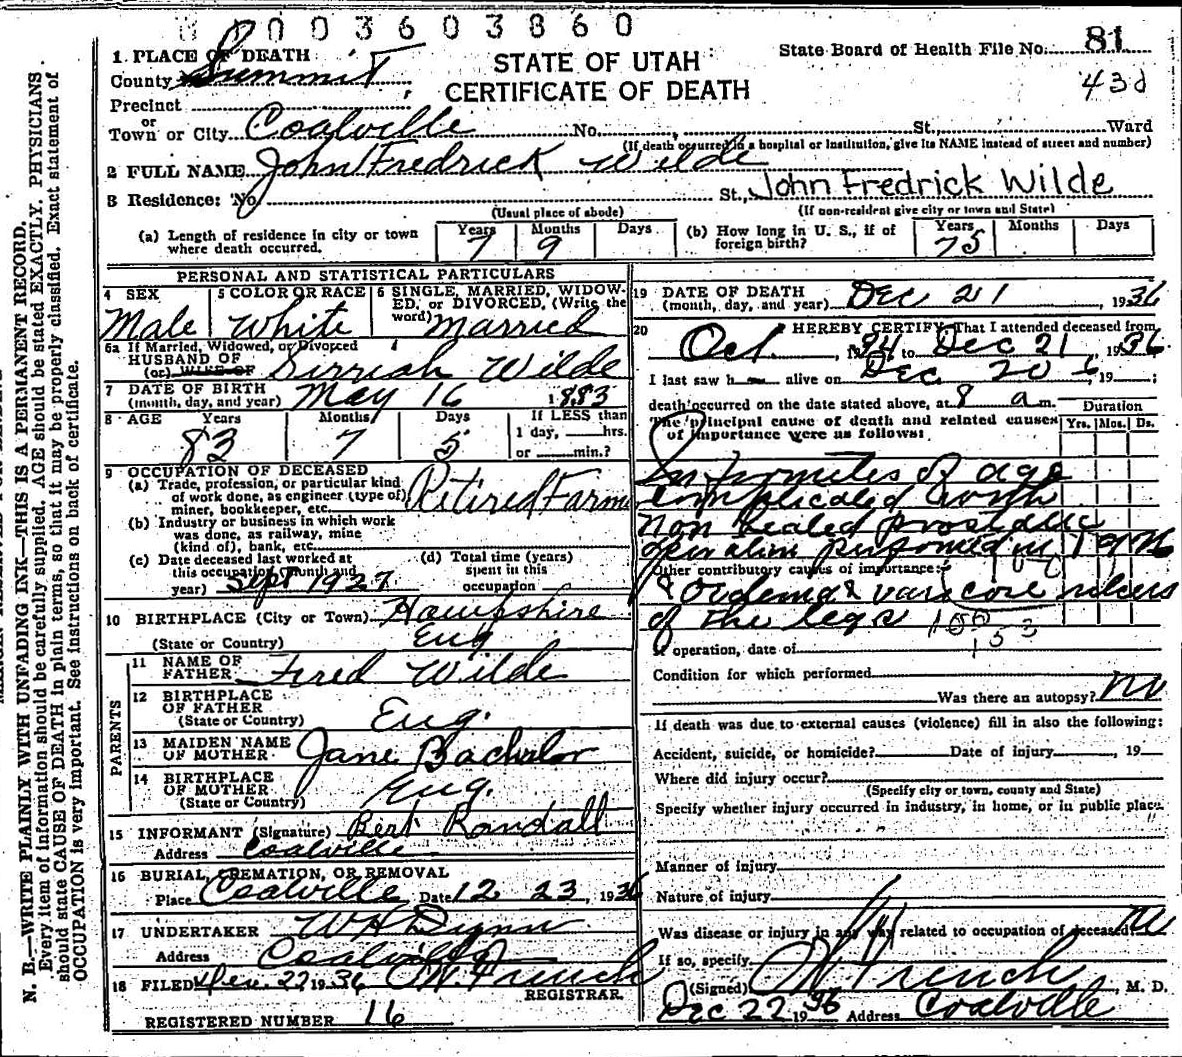 0003603860
1 PLACE OF DEATH
County Summit
STATE OF UTAH
CERTIFICATE OF DEATH
State Board of Health File No. 81
43d
Precinct
or
Town or City Coalville No. , St., Ward
(If death occurred in a hospital or institution, give its NAME instead of street and number)
2 FULL NAME John Fredrick Wilde
3 Residence: No. St., John Fredrick Wilde
(Usual place of abode) (If non-resident give city or town and State)
(a) Length of residence in city or town where death occurred. Years 7 Months 9 Days
(b) How long in U. S., if of foreign birth? Years 75 Months Days
PERSONAL AND STATISTICAL PARTICULARS
4 SEX Male
5 COLOR OR RACE White
6 SINGLE, MARRIED, WIDOWED, or DIVORCED, (Write the word) Married
6a If Married, Widowed, or Divorced
HUSBAND OF
(or) WIFE OF Wilde
7 DATE OF BIRTH (month, day, and year) May 16 1883
8 AGE Years 83 Months 7 Days 5
If LESS than 1 day, hrs. or min.?
9 OCCUPATION OF DECEASED
(a) Trade, profession, or particular kind of work done, as engineer (type of) miner, bookkeeper, etc. Retired Farm
(b) Industry or business in which work was done, as railway, mine (kind of), bank, etc.
(c) Date deceased last worked at this occupation (month and year) Sept 1927
(d) Total time (years) spent in this occupation
10 BIRTHPLACE (City or Town) Hampshire
(State or Country) Eng
PARENTS
11 NAME OF FATHER Fred Wilde
12 BIRTHPLACE OF FATHER (State or Country) Eng.
13 MAIDEN NAME OF MOTHER Jane Bachelor
14 BIRTHPLACE OF MOTHER (State or Country) Eng.
15 INFORMANT (Signature) Bert Randall
Address Coalville
16 BURIAL, CREMATION, OR REMOVAL
Place Coalville Date 12 23, 1936
17 UNDERTAKER W H
Address Coalville
18 FILED Dec. 22 1936 French
REGISTRAR.
REGISTERED NUMBER 16
19 DATE OF DEATH (month, day, and year) Dec 21, 1936
20 I HEREBY CERTIFY, That I attended deceased from
Oct , to Dec 21, 1936
I last saw h alive on Dec 20 6, 19 ;
death occurred on the date stated above, at 8 a m.
The principal cause of death and related causes of importance were as follows:
Duration
Yrs. Mos. Ds.
Infirmites of age
complicated with
non healed prostatic
operation performed in
Other contributory causes of importance:
& Oedema & varicose ulcers
of the legs
If operation, date of
Condition for which performed
Was there an autopsy? No
If death was due to external causes (violence) fill in also the following:
Accident, suicide, or homicide? Date of injury , 19
Where did injury occur?
(Specify city or town, county and State)
Specify whether injury occurred in industry, in home, or in public place.
Manner of injury
Nature of injury
Was disease or injury in any way related to occupation of deceased? No
If so, specify
(Signed) French, M. D.
Dec 22 1936 Address Coalville
N. B.—WRITE PLAINLY WITH UNFADING INK—THIS IS A PERMANENT RECORD.
Every item of information should be carefully supplied. AGE should be stated EXACTLY. PHYSICIANS
should state CAUSE OF DEATH in plain terms, so that it may be properly classified. Exact statement of
OCCUPATION is very important. See instructions on back of certificate.